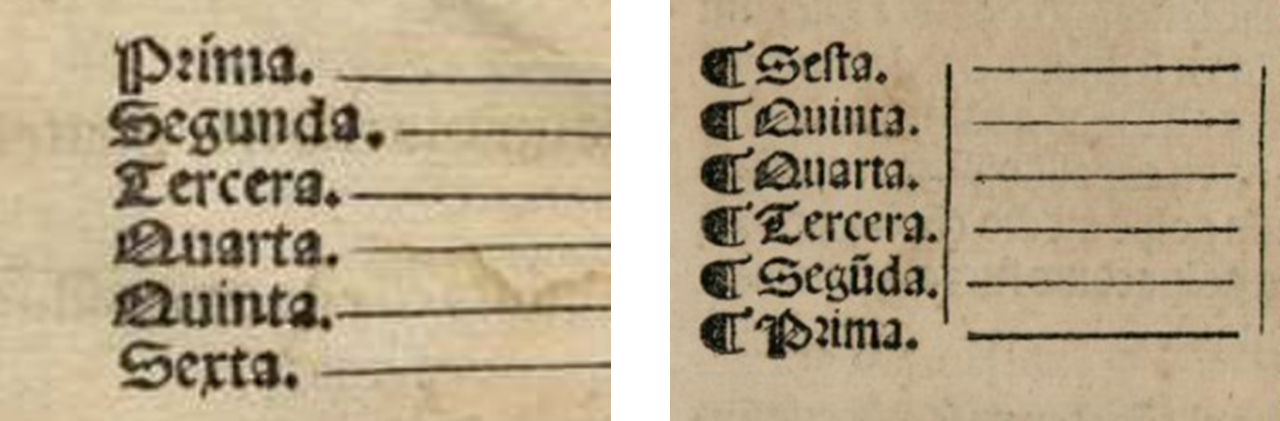 Prima.
Segunda.
Tercera.
Quarta.
Quinta.
Sexta.
¶ Sesta.
¶ Quinta.
¶ Quarta.
¶ Tercera.
¶ Segũda.
¶ Prima.